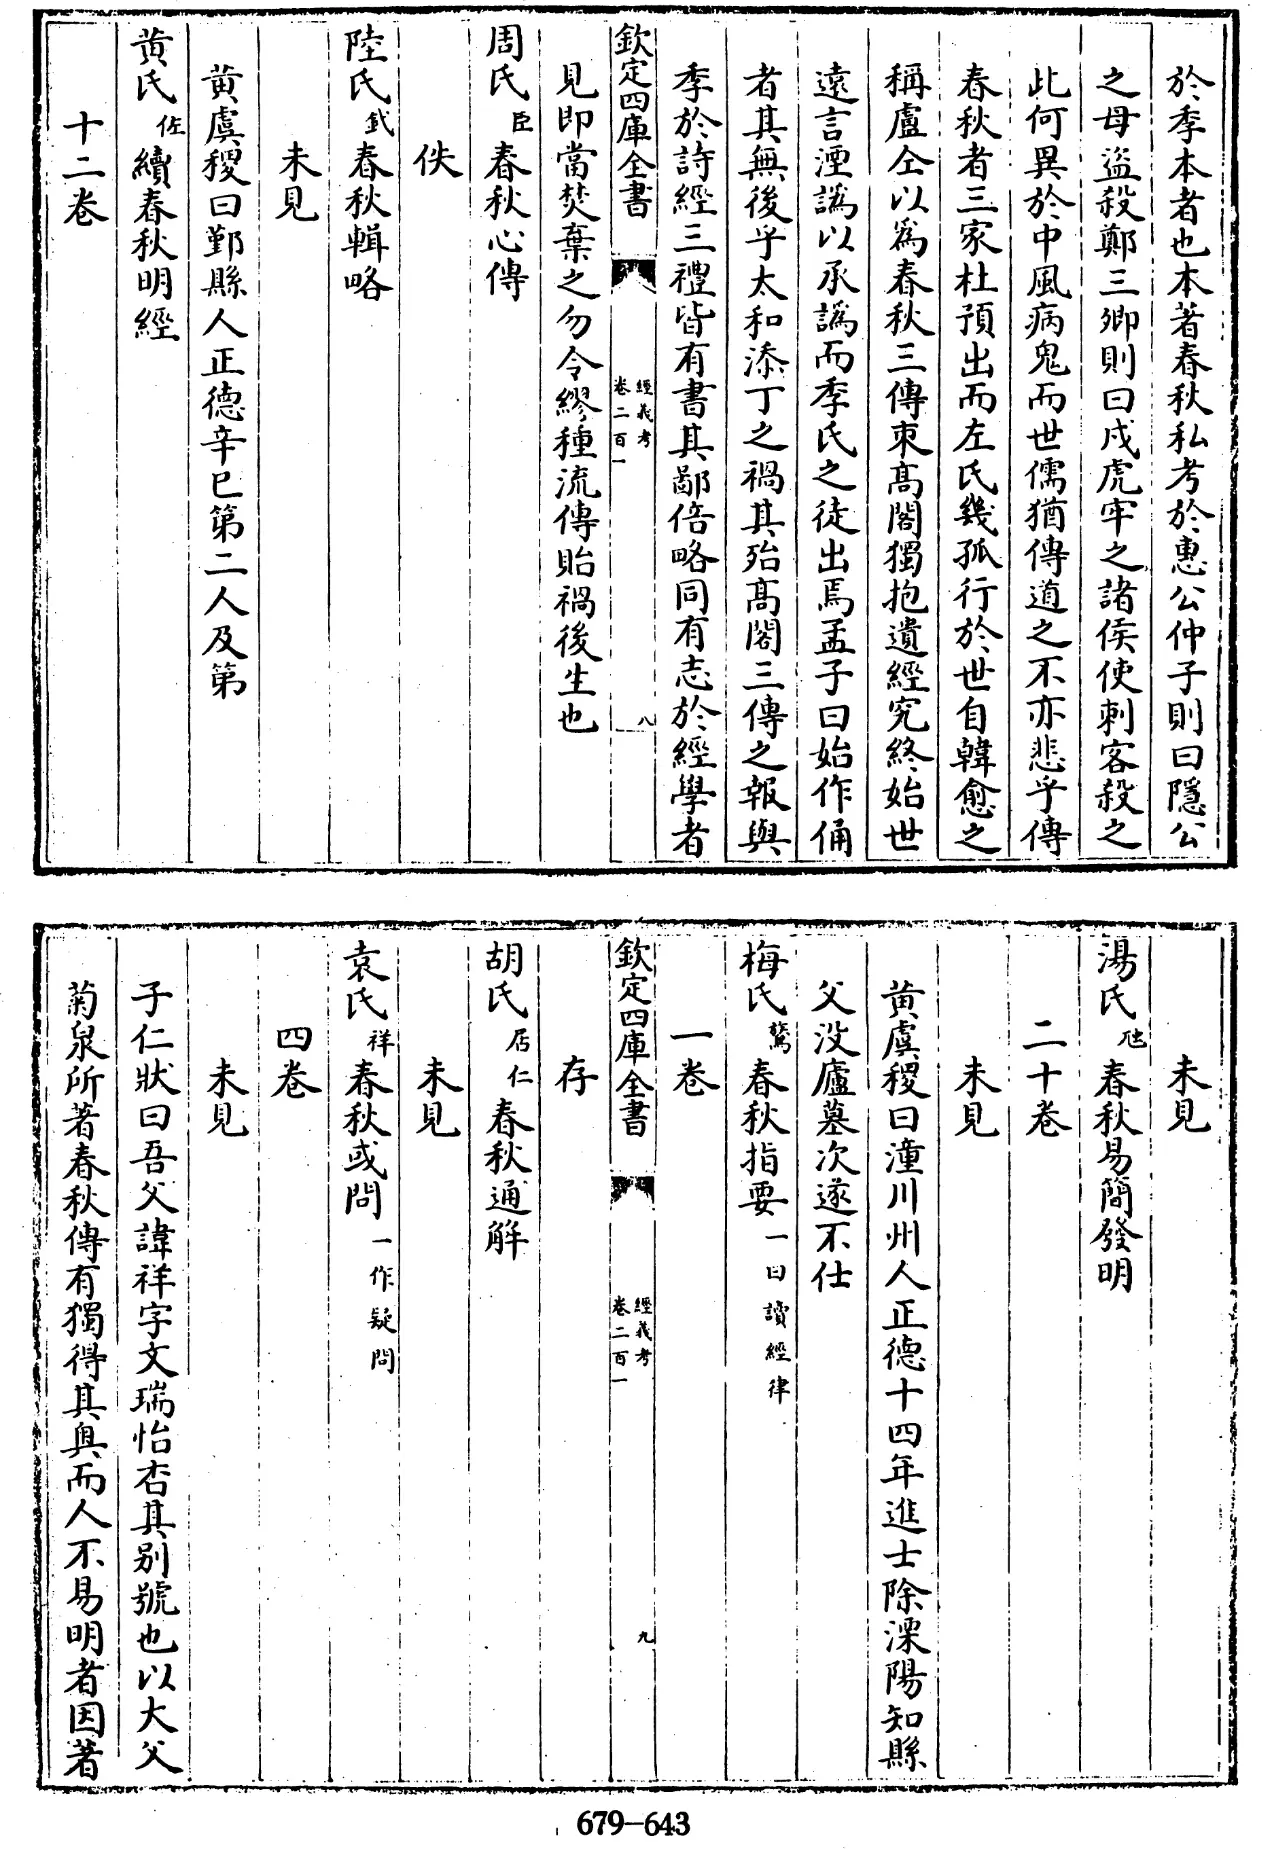 於季本者也本著春秋私考於惠公仲子則曰隱公
之母盗殺鄭三卿則曰戍虎牢之諸侯使刺客殺之
此何異於中風病鬼而世儒猶傳道之不亦悲乎傳
春秋者三家杜預出而左氏幾孤行於世自韓愈之
稱盧仝以為春秋三傳束髙閣獨抱遺經究終始世
遠言湮譌以承譌而季氏之徒出焉孟子曰始作俑
者其無後乎太和添丁之禍其殆髙閣三傳之報與
季於詩經三禮皆有書其鄙倍略同有志於經學者
欽定四庫全書
經義考
卷二百一
八
見即當焚棄之勿令繆種流傳貽禍後生也
周氏臣春秋心傳
佚
陸氏釴春秋輯略
未見
黄虞稷曰鄞縣人正德辛巳第二人及第
黄氏佐續春秋明經
十二卷
未見
湯氏虺春秋易簡發明
二十卷
未見
黄虞稷曰潼川州人正德十四年進士除溧陽知縣
父没廬墓次遂不仕
梅氏鷟春秋指要一曰讀經律
一卷
欽定四庫全書
經義考
卷二百一
九
存
胡氏居仁春秋通解
未見
袁氏祥春秋或問一作疑問
四卷
未見
子仁狀曰吾父諱祥字文瑞怡杏其别號也以大父
菊泉所著春秋傳有獨得其奥而人不易明者因著
679-643